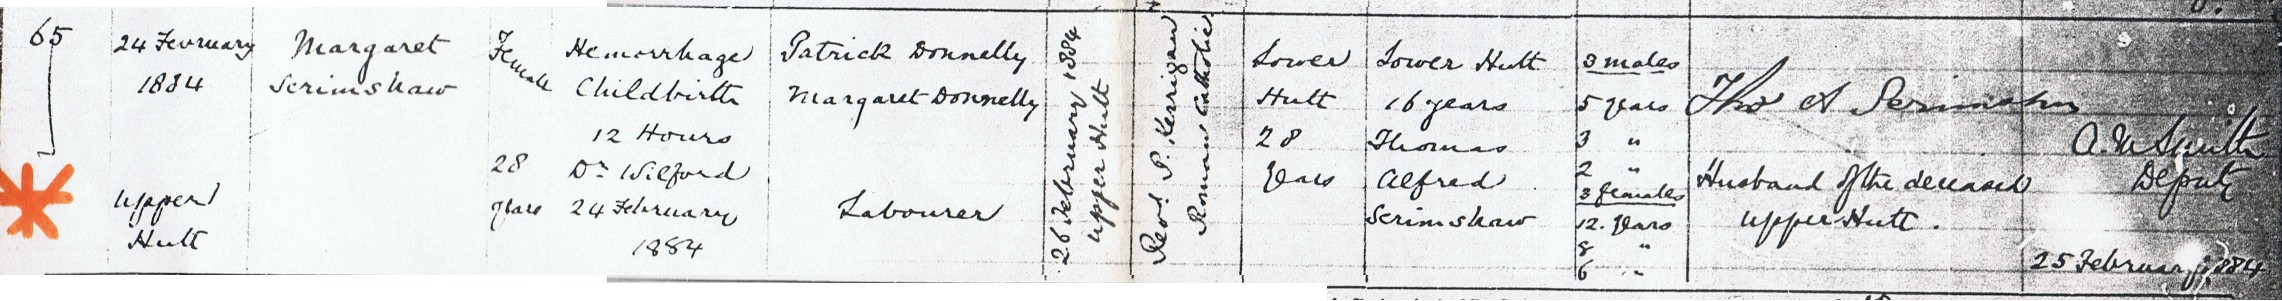 65
24 February
1884
Upper
Hutt
Margaret
Scrimshaw
Female
28
years
Hemorrhage
Childbirth
12 Hours
Dr Wilford
24 February
1884
Patrick Donnelly
Margaret Donnelly
Labourer
26 February 1884
Upper Hutt
Revd P. Kerrigan
Roman Catholic
Lower
Hutt
28
years
Lower Hutt
16 years
Thomas
Alfred
Scrimshaw
3 males
5 years
3 "
2 "
3 females
12. years
8 "
6 "
Thos A Scrimshaw
Husband of the deceased
Upper Hutt.
Smith
Deputy
25 February 1884